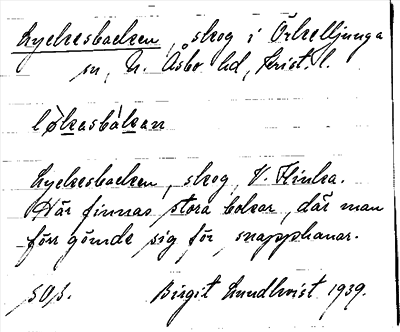 Lyckesbacken, skog i Örkelljunga
sn, N. Åsbo hd, Krist. l.
løkasbàkan
Lyckesbacken, skog, V. Flinka.
Här finnas stora bokar, där man
förr gömde sig för snapphanar.
sOs. Birgit Lundkvist 1939.